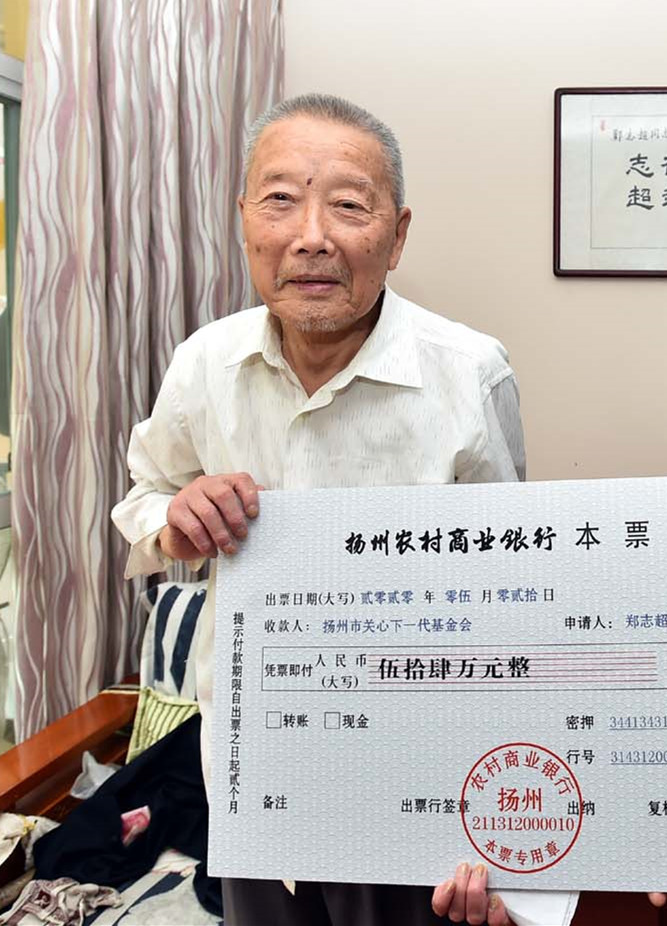 郑志超同
志
超
扬州农村商业银行 本 票
出票日期(大写) 贰零贰零 年 零伍 月 零贰拾 日
收款人: 扬州市关心下一代基金会 申请人: 郑志超
凭票即付 人民币(大写) 伍拾肆万元整
转账 现金 密押 3441343
行号 3143120
备注 出票行签章 出纳 复
提示付款期限自出票之日起贰个月
农村商业银行
扬州
211312000010
本票专用章